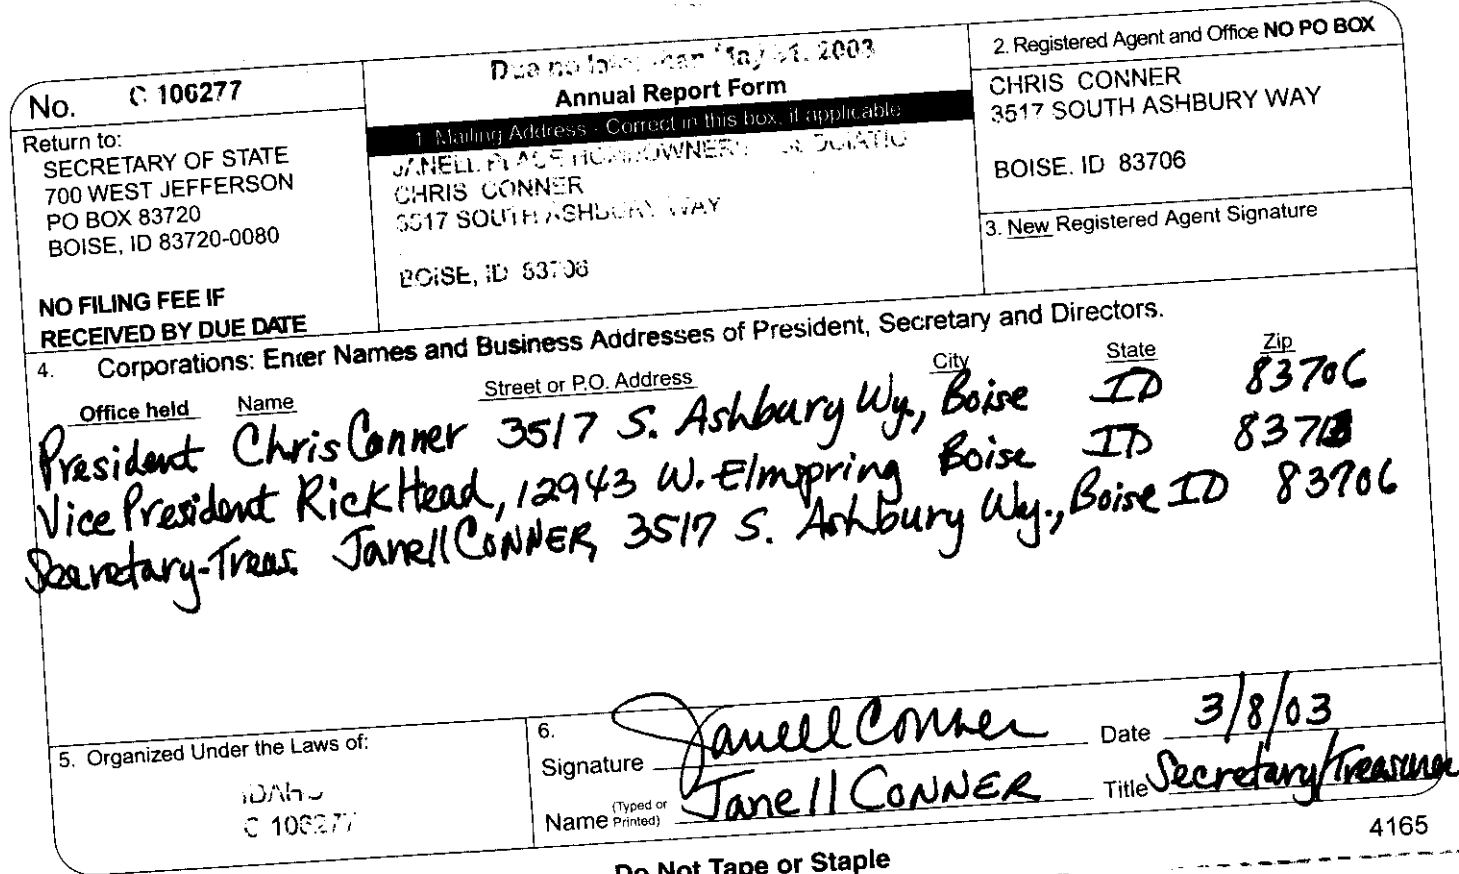 No. C 106277
Return to:
SECRETARY OF STATE
700 WEST JEFFERSON
PO BOX 83720
BOISE, ID 83720-0080
NO FILING FEE IF
RECEIVED BY DUE DATE
Due no later than May 31, 2003
Annual Report Form
1. Mailing Address - Correct in this box, if applicable
JANELL PLACE HOMEOWNERS
CHRIS CONNER
3517 SOUTH ASHBURY WAY
BOISE, ID 83706
2. Registered Agent and Office NO PO BOX
CHRIS CONNER
3517 SOUTH ASHBURY WAY
BOISE. ID 83706
3. New Registered Agent Signature
4. Corporations: Enter Names and Business Addresses of President, Secretary and Directors.
Office held Name Street or P.O. Address City State Zip
President Chris Conner 3517 S. Ashbury Wy., Boise ID 83706
Vice President Rick Head, 12943 W. Elmspring Boise ID
Secretary-Treas. Janell CONNER, 3517 S. Ashbury Wy., Boise ID 83706
5. Organized Under the Laws of:
IDAHO
C 106277
6.
Signature Janell Conner Date 3/8/03
Name (Typed or Printed) Janell CONNER Title Secretary/Treasurer
4165
Do Not Tape or Staple